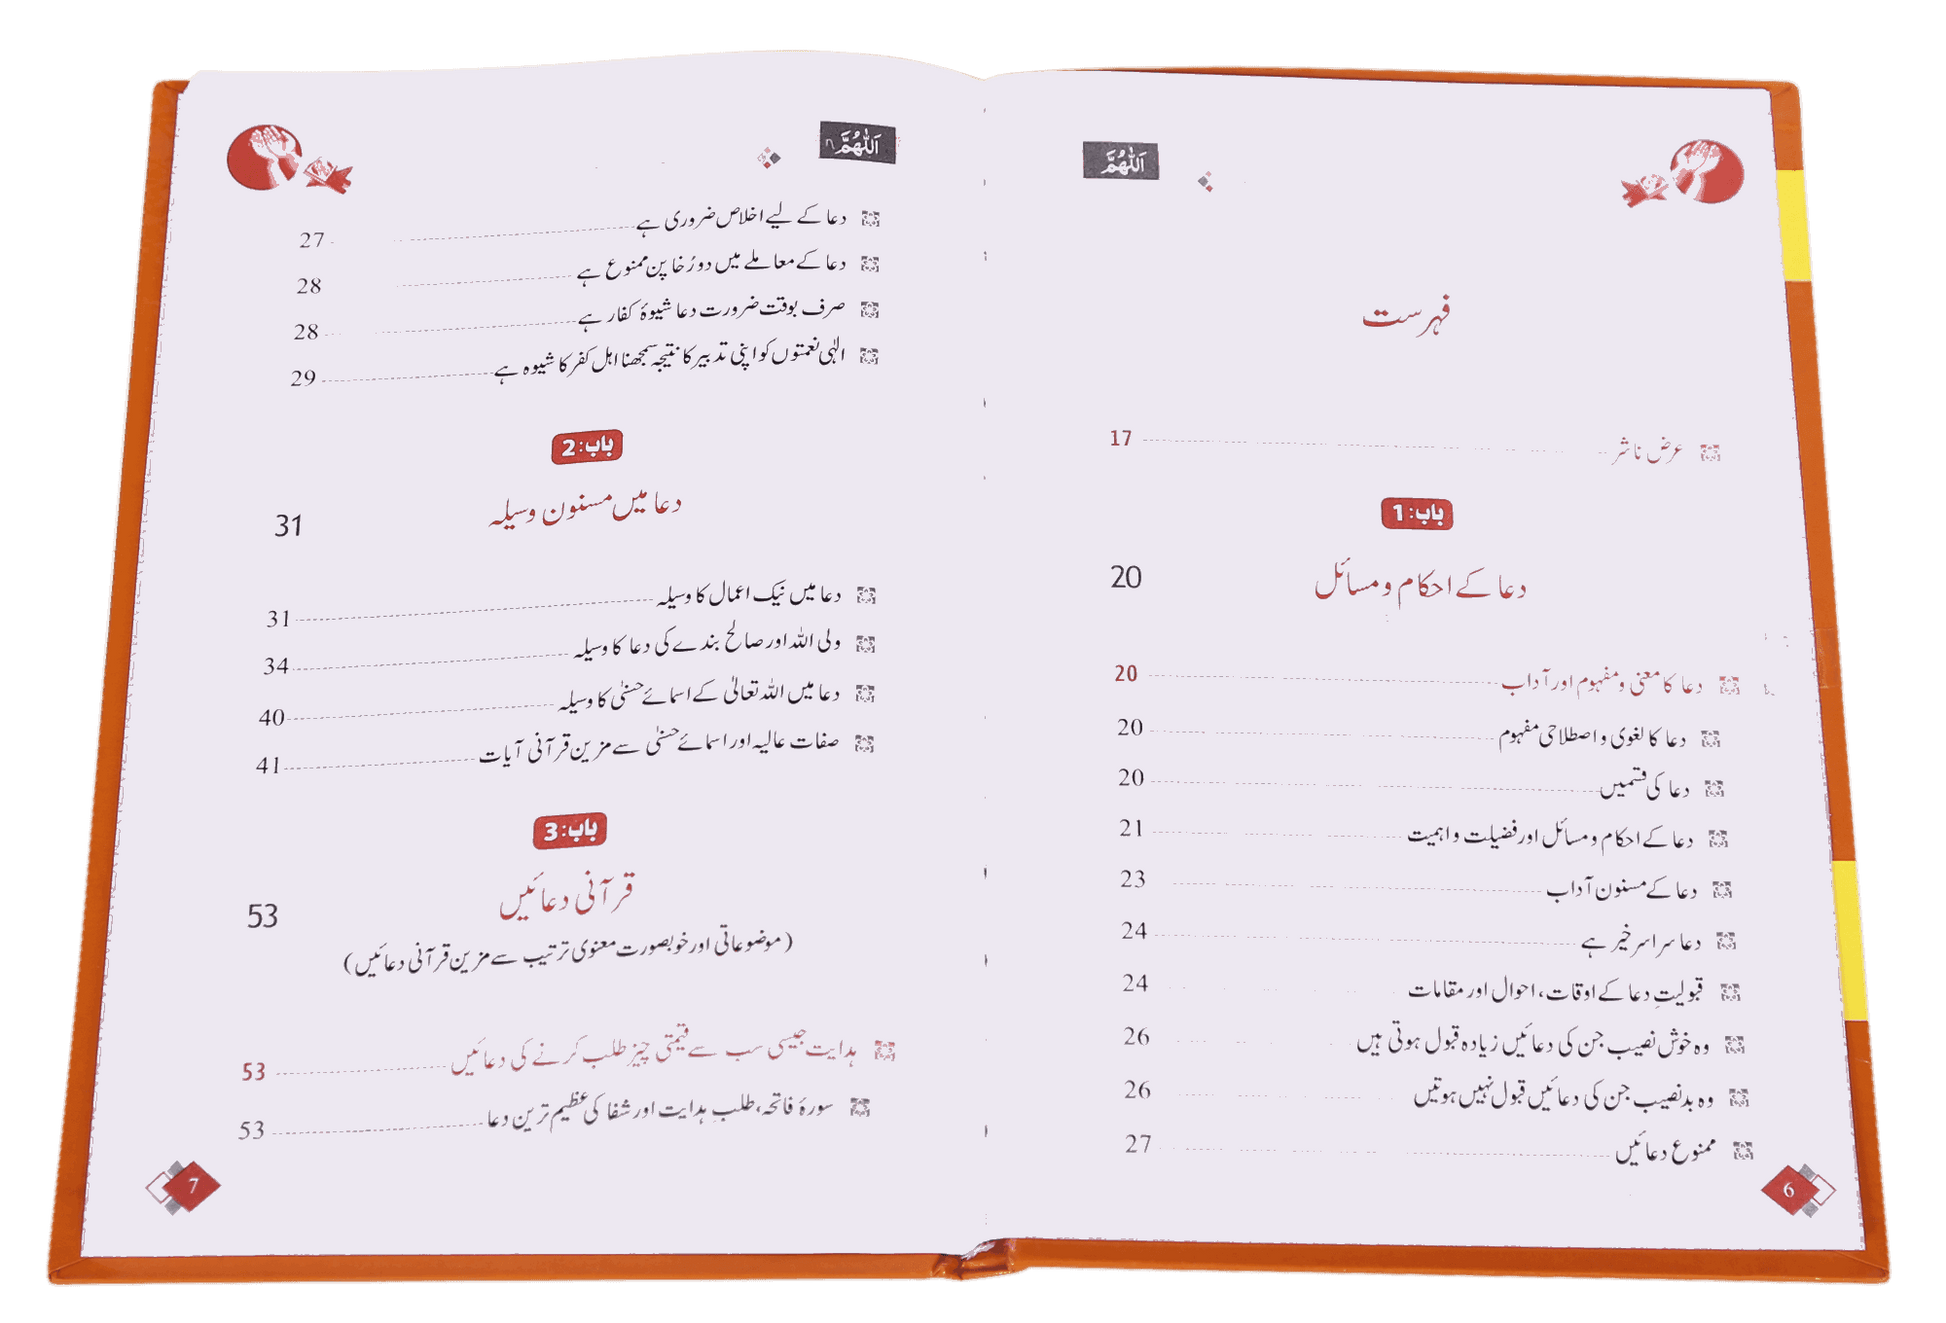 اَللّٰهُمَّ
فہرست
عرض ناشر 17
باب: 1
دعا کے احکام و مسائل 20
دعا کا معنی و مفہوم اور آداب 20
دعا کا لغوی و اصطلاحی مفہوم 20
دعا کی قسمیں 20
دعا کے احکام و مسائل اور فضیلت و اہمیت 21
دعا کے مسنون آداب 23
دعا سراسر خیر ہے 24
قبولیتِ دعا کے اوقات، احوال اور مقامات 24
وہ خوش نصیب جن کی دعائیں زیادہ قبول ہوتی ہیں 26
وہ بدنصیب جن کی دعائیں قبول نہیں ہوتیں 26
ممنوع دعائیں 27
6
اَللّٰهُمَّ
دعا کے لیے اخلاص ضروری ہے 27
دعا کے معاملے میں دورُخا پن ممنوع ہے 28
صرف بوقت ضرورت دعا شیوۂ کفار ہے 28
الٰہی نعمتوں کو اپنی تدبیر کا نتیجہ سمجھنا اہل کفر کا شیوہ ہے 29
باب: 2
دعا میں مسنون وسیلہ 31
دعا میں نیک اعمال کا وسیلہ 31
ولی اللہ اور صالح بندے کی دعا کا وسیلہ 34
دعا میں اللہ تعالیٰ کے اسمائے حسنیٰ کا وسیلہ 40
صفات عالیہ اور اسمائے حسنیٰ سے مزین قرآنی آیات 41
باب: 3
قرآنی دعائیں 53
(موضوعاتی اور خوبصورت معنوی ترتیب سے مزین قرآنی دعائیں)
ہدایت جیسی سب سے قیمتی چیز طلب کرنے کی دعائیں 53
سورۂ فاتحہ، طلبِ ہدایت اور شفا کی عظیم ترین دعا 53
7